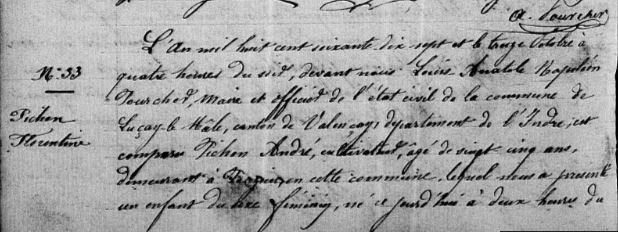 A. Fourcher
L'an mil huit cent soixante dix sept et le treize Octobre à
N.° 33
quatre heures du soir, devant nous Louis Anatole Napoléon
Fourcher, Maire et officier de l'état civil de la commune de
Pichon
Luçay-le-Mâle, canton de Valençay, département de l'Indre, est
Florentine
comparu Pichon André, cultivateur, âgé de vingt cinq ans,
demeurant à en cette commune, lequel nous a présenté
un enfant du sexe féminin, né ce jourd'hui à deux heures du